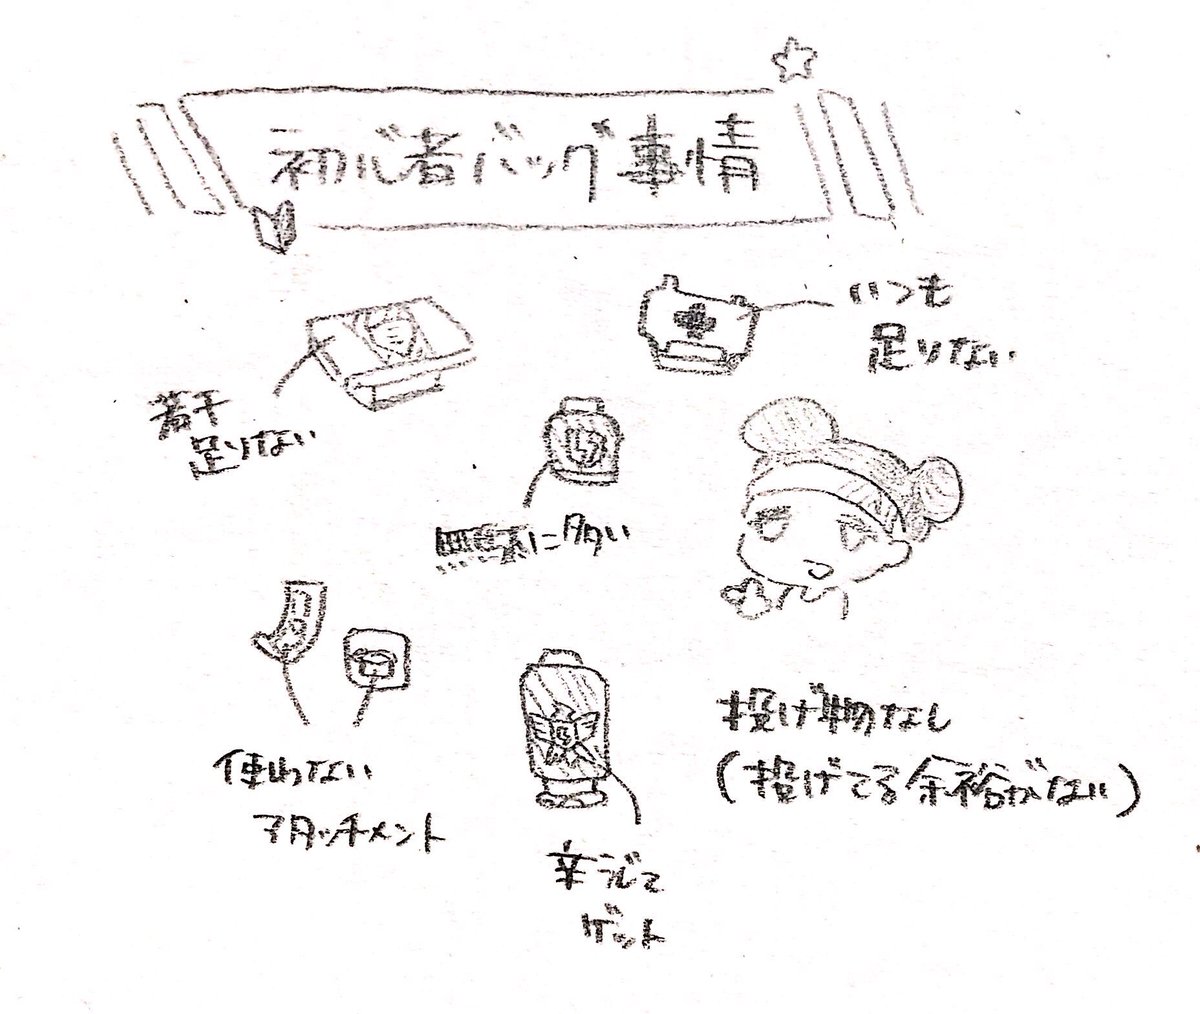 初心者バッグ事情
いつも
足りない
若干
足りない
に多い
使わない
アタッチメント
辛うじて
ゲット
投げ物なし
(投げてる余裕がない)